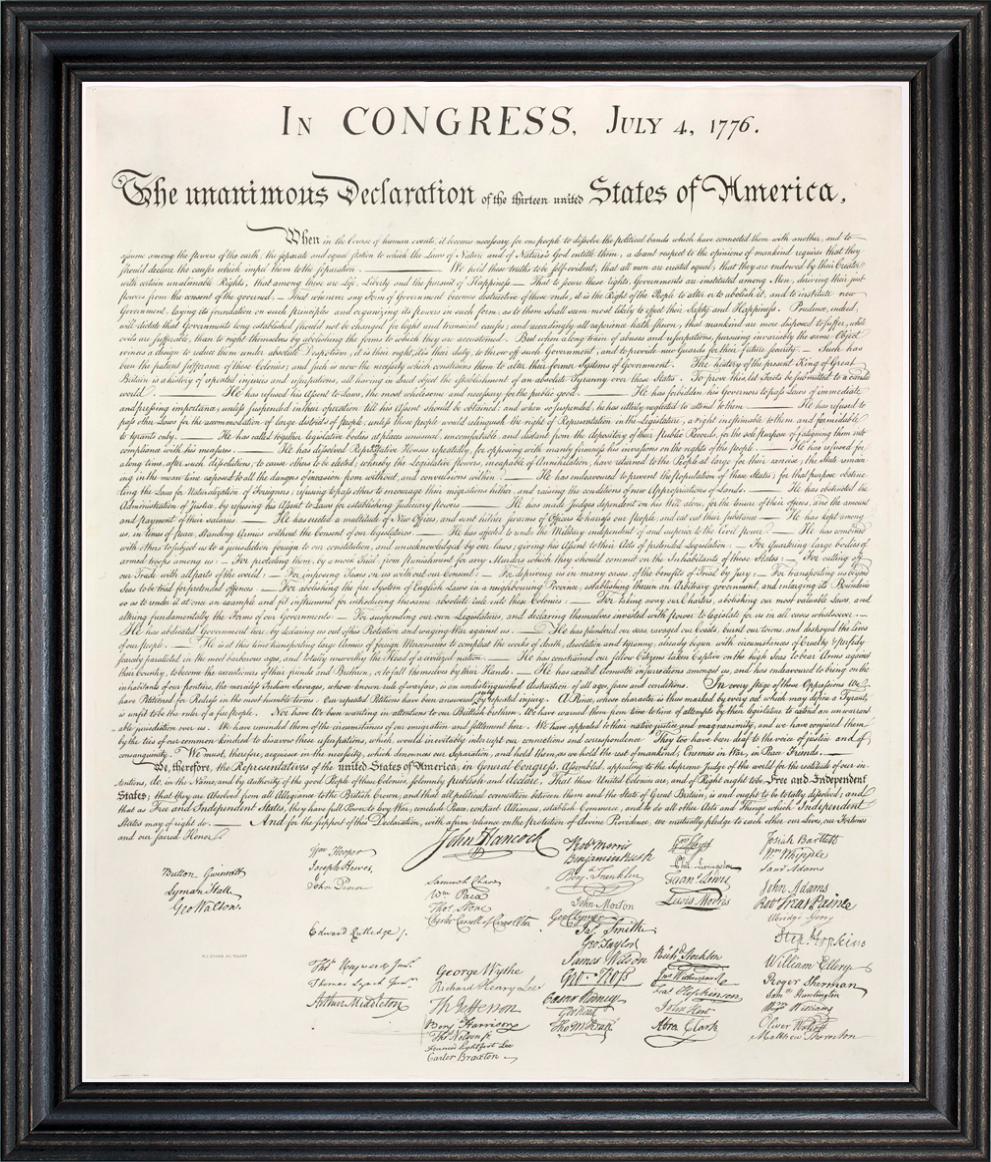 IN CONGRESS, JULY 4, 1776.
The unanimous Declaration of the thirteen united States of America,
When in the Course of human events, it becomes necessary for one people to dissolve the political bands which have connected them with another, and to
assume among the powers of the earth, the separate and equal station to which the Laws of Nature and of Nature's God entitle them, a decent respect to the opinions of mankind requires that they
should declare the causes which impel them to the separation. — We hold these truths to be self-evident, that all men are created equal, that they are endowed by their Creator
with certain unalienable Rights, that among these are Life, Liberty and the pursuit of Happiness. — That to secure these rights, Governments are instituted among Men, deriving their just
powers from the consent of the governed, — That whenever any Form of Government becomes destructive of these ends, it is the Right of the People to alter or to abolish it, and to institute new
Government, laying its foundation on such principles and organizing its powers in such form, as to them shall seem most likely to effect their Safety and Happiness. Prudence, indeed,
will dictate that Governments long established should not be changed for light and transient causes; and accordingly all experience hath shewn, that mankind are more disposed to suffer, while
evils are sufferable, than to right themselves by abolishing the forms to which they are accustomed. But when a long train of abuses and usurpations, pursuing invariably the same Object
evinces a design to reduce them under absolute Despotism, it is their right, it is their duty, to throw off such Government, and to provide new Guards for their future security. — Such has
been the patient sufferance of these Colonies; and such is now the necessity which constrains them to alter their former Systems of Government. The history of the present King of Great
Britain is a history of repeated injuries and usurpations, all having in direct object the establishment of an absolute Tyranny over these States. To prove this, let Facts be submitted to a candid
world. — He has refused his Assent to Laws, the most wholesome and necessary for the public good. — He has forbidden his Governors to pass Laws of immediate
and pressing importance, unless suspended in their operation till his Assent should be obtained; and when so suspended, he has utterly neglected to attend to them. — He has refused to
pass other Laws for the accommodation of large districts of people, unless those people would relinquish the right of Representation in the Legislature, a right inestimable to them and formidable
to tyrants only. — He has called together legislative bodies at places unusual, uncomfortable, and distant from the depository of their Public Records, for the sole purpose of fatiguing them into
compliance with his measures. — He has dissolved Representative Houses repeatedly, for opposing with manly firmness his invasions on the rights of the people. — He has refused for
a long time, after such dissolutions, to cause others to be elected; whereby the Legislative powers, incapable of Annihilation, have returned to the People at large for their exercise; the State remain-
ing in the mean time exposed to all the dangers of invasion from without, and convulsions within. — He has endeavoured to prevent the population of these States; for that purpose obstruc-
ting the Laws for Naturalization of Foreigners; refusing to pass others to encourage their migrations hither, and raising the conditions of new Appropriations of Lands. — He has obstructed the
Administration of Justice, by refusing his Assent to Laws for establishing Judiciary powers. — He has made Judges dependent on his Will alone, for the tenure of their offices, and the amount
and payment of their salaries. — He has erected a multitude of New Offices, and sent hither swarms of Officers to harrass our people, and eat out their substance. — He has kept among
us, in times of peace, Standing Armies without the Consent of our legislatures. — He has affected to render the Military independent of and superior to the Civil power. — He has combined
with others to subject us to a jurisdiction foreign to our constitution, and unacknowledged by our laws; giving his Assent to their Acts of pretended Legislation: — For Quartering large bodies of
armed troops among us: — For protecting them, by a mock Trial, from punishment for any Murders which they should commit on the Inhabitants of these States: — For cutting off
our Trade with all parts of the world: — For imposing Taxes on us without our Consent: — For depriving us in many cases, of the benefits of Trial by Jury: — For transporting us beyond
Seas to be tried for pretended offences — For abolishing the free System of English Laws in a neighbouring Province, establishing therein an Arbitrary government, and enlarging its Boundaries
so as to render it at once an example and fit instrument for introducing the same absolute rule into these Colonies: — For taking away our Charters, abolishing our most valuable Laws, and
altering fundamentally the Forms of our Governments: — For suspending our own Legislatures, and declaring themselves invested with power to legislate for us in all cases whatsoever. —
He has abdicated Government here, by declaring us out of his Protection and waging War against us. — He has plundered our seas, ravaged our Coasts, burnt our towns, and destroyed the lives
of our people. — He is at this time transporting large Armies of foreign Mercenaries to compleat the works of death, desolation and tyranny, already begun with circumstances of Cruelty & perfidy
scarcely paralleled in the most barbarous ages, and totally unworthy the Head of a civilized nation. — He has constrained our fellow Citizens taken Captive on the high Seas to bear Arms against
their Country, to become the executioners of their friends and Brethren, or to fall themselves by their Hands. — He has excited domestic insurrections amongst us, and has endeavoured to bring on the
inhabitants of our frontiers, the merciless Indian Savages, whose known rule of warfare, is an undistinguished destruction of all ages, sexes and conditions. In every stage of these Oppressions We
have Petitioned for Redress in the most humble terms: Our repeated Petitions have been answered only by repeated injury. A Prince, whose character is thus marked by every act which may define a Tyrant,
is unfit to be the ruler of a free people. Nor have We been wanting in attentions to our Brittish brethren. We have warned them from time to time of attempts by their legislature to extend an unwarrant-
able jurisdiction over us. We have reminded them of the circumstances of our emigration and settlement here. We have appealed to their native justice and magnanimity, and we have conjured them
by the ties of our common kindred to disavow these usurpations, which, would inevitably interrupt our connections and correspondence. They too have been deaf to the voice of justice and of
consanguinity. We must, therefore, acquiesce in the necessity, which denounces our Separation, and hold them, as we hold the rest of mankind, Enemies in War, in Peace Friends. —
We, therefore, the Representatives of the united States of America, in General Congress, Assembled, appealing to the Supreme Judge of the world for the rectitude of our in-
tentions, do, in the Name, and by Authority of the good People of these Colonies, solemnly publish and declare, That these United Colonies are, and of Right ought to be Free and Independent
States; that they are Absolved from all Allegiance to the British Crown, and that all political connection between them and the State of Great Britain, is and ought to be totally dissolved; and
that as Free and Independent States, they have full Power to levy War, conclude Peace, contract Alliances, establish Commerce, and to do all other Acts and Things which Independent
States may of right do. — And for the support of this Declaration, with a firm reliance on the protection of divine Providence, we mutually pledge to each other our Lives, our Fortunes
and our sacred Honor.
Button Gwinnett
Lyman Hall
Geo Walton.
Wm Hooper
Joseph Hewes,
John Penn
Edward Rutledge /.
Thos Heyward Junr.
Thomas Lynch Junr.
Arthur Middleton
John Hancock
Samuel Chase
Wm. Paca
Thos. Stone
Charles Carroll of Carrollton
George Wythe
Richard Henry Lee
Th Jefferson
Benj Harrison
Thos Nelson jr.
Francis Lightfoot Lee
Carter Braxton
Robt Morris
Benjamin Rush
Benj. Franklin
John Morton
Geo Clymer
Jas. Smith
Geo. Taylor
James Wilson
Geo. Ross
Caesar Rodney
Geo Read
Tho M:Kean
Phil. Livingston
Frans. Lewis
Lewis Morris
Richd. Stockton
Jno Witherspoon
Fras. Hopkinson
John Hart
Abra Clark
Josiah Bartlett
Wm. Whipple
Saml Adams
John Adams
Robt Treat Paine
Elbridge Gerry
Step. Hopkins
William Ellery
Roger Sherman
Saml. Huntington
Wm. Williams
Oliver Wolcott
Matthew Thornton